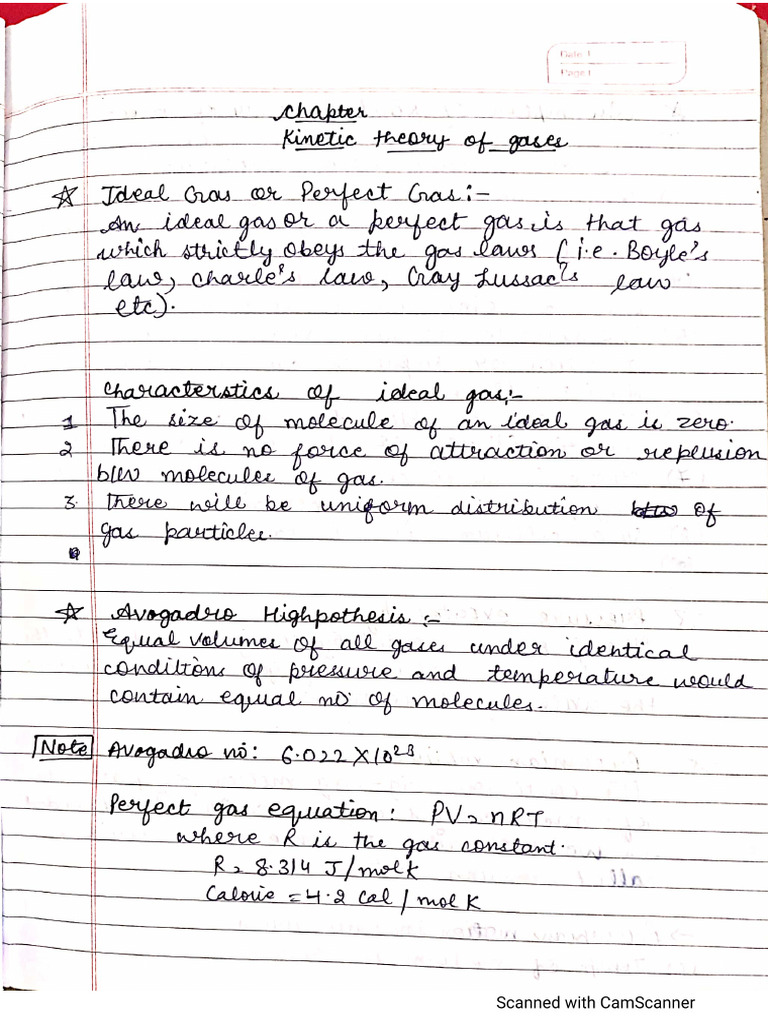 Date :
Page :
Chapter
Kinetic theory of gases
☆ Ideal Gas or Perfect Gas:-
An ideal gas or a perfect gas is that gas
which strictly obeys the gas laws (i.e. Boyle's
law, Charle's law, Gay Lussac's law
etc).
Characterstics of ideal gas:-
1 The size of molecule of an ideal gas is zero.
2 There is no force of attraction or replusion
b/w molecules of gas.
3. There will be uniform distribution of
gas particles.
☆ Avogadro Highpothesis :-
Equal volumes of all gases under identical
conditions of pressure and temperature would
contain equal no of molecules.
Note Avogadro no: 6.022 X 10²³
Perfect gas equation: PV = nRT
where R is the gas constant.
R = 8.314 J/mol K
Calorie = 4.2 cal / mol K
Scanned with CamScanner